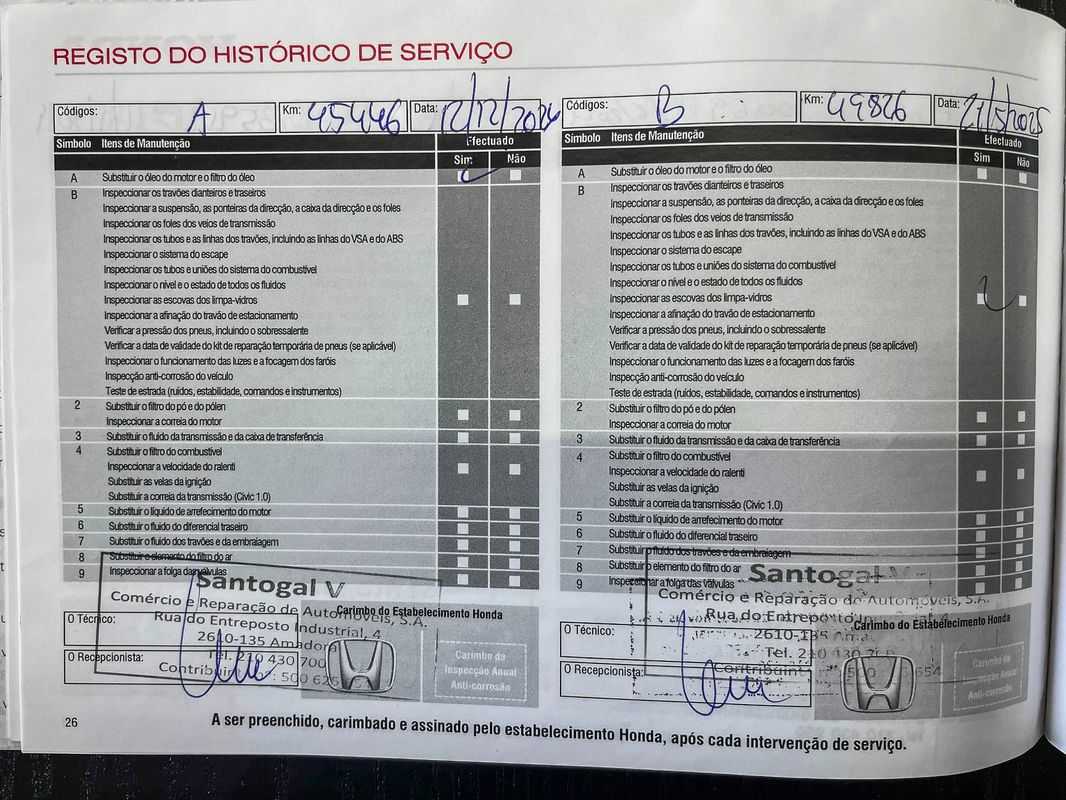 REGISTO DO HISTÓRICO DE SERVIÇO
Códigos: A Km: 45446 Data: 12/12/2024
Símbolo Itens de Manutenção Efectuado
Sim Não
A Substituir o óleo do motor e o filtro do óleo
B Inspeccionar os travões dianteiros e traseiros
Inspeccionar a suspensão, as ponteiras da direcção, a caixa da direcção e os foles
Inspeccionar os foles dos veios de transmissão
Inspeccionar os tubos e as linhas dos travões, incluindo as linhas do VSA e do ABS
Inspeccionar o sistema do escape
Inspeccionar os tubos e uniões do sistema do combustível
Inspeccionar o nível e o estado de todos os fluidos
Inspeccionar as escovas dos limpa-vidros
Inspeccionar a afinação do travão de estacionamento
Verificar a pressão dos pneus, incluindo o sobressalente
Verificar a data de validade do kit de reparação temporária de pneus (se aplicável)
Inspeccionar o funcionamento das luzes e a focagem dos faróis
Inspecção anti-corrosão do veículo
Teste de estrada (ruídos, estabilidade, comandos e instrumentos)
2 Substituir o filtro do pó e do pólen
Inspeccionar a correia do motor
3 Substituir o fluido da transmissão e da caixa de transferência
4 Substituir o filtro do combustível
Inspeccionar a velocidade do ralenti
Substituir as velas da ignição
Substituir a correia da transmissão (Civic 1.0)
5 Substituir o líquido de arrefecimento do motor
6 Substituir o fluido do diferencial traseiro
7 Substituir o fluido dos travões e da embraiagem
8 Substituir o elemento do filtro do ar
9 Inspeccionar a folga das válvulas
Santogal V
Comércio e Reparação de Automóveis, S.A.
Rua do Entreposto Industrial, 4
2610-135 Amadora
Tel. 210 430 700
Contribuinte: 500
Carimbo do Estabelecimento Honda
O Técnico:
O Recepcionista:
Carimbo da
Inspecção Anual
Anti-corrosão
Códigos: B Km: 49826 Data: 21/5/2025
Símbolo Itens de Manutenção Efectuado
Sim Não
A Substituir o óleo do motor e o filtro do óleo
B Inspeccionar os travões dianteiros e traseiros
Inspeccionar a suspensão, as ponteiras da direcção, a caixa da direcção e os foles
Inspeccionar os foles dos veios de transmissão
Inspeccionar os tubos e as linhas dos travões, incluindo as linhas do VSA e do ABS
Inspeccionar o sistema do escape
Inspeccionar os tubos e uniões do sistema do combustível
Inspeccionar o nível e o estado de todos os fluidos
Inspeccionar as escovas dos limpa-vidros
Inspeccionar a afinação do travão de estacionamento
Verificar a pressão dos pneus, incluindo o sobressalente
Verificar a data de validade do kit de reparação temporária de pneus (se aplicável)
Inspeccionar o funcionamento das luzes e a focagem dos faróis
Inspecção anti-corrosão do veículo
Teste de estrada (ruídos, estabilidade, comandos e instrumentos)
2 Substituir o filtro do pó e do pólen
Inspeccionar a correia do motor
3 Substituir o fluido da transmissão e da caixa de transferência
4 Substituir o filtro do combustível
Inspeccionar a velocidade do ralenti
Substituir as velas da ignição
Substituir a correia da transmissão (Civic 1.0)
5 Substituir o líquido de arrefecimento do motor
6 Substituir o fluido do diferencial traseiro
7 Substituir o fluido dos travões e da embraiagem
8 Substituir o elemento do filtro do ar
9 Inspeccionar a folga das válvulas
Santogal V
Comércio e Reparação de Automóveis, S.A.
Rua do Entreposto
2610-135
Tel. 210 430
Carimbo do Estabelecimento Honda
O Técnico:
O Recepcionista:
Carimbo da
Inspecção Anual
Anti-corrosão
26 A ser preenchido, carimbado e assinado pelo estabelecimento Honda, após cada intervenção de serviço.